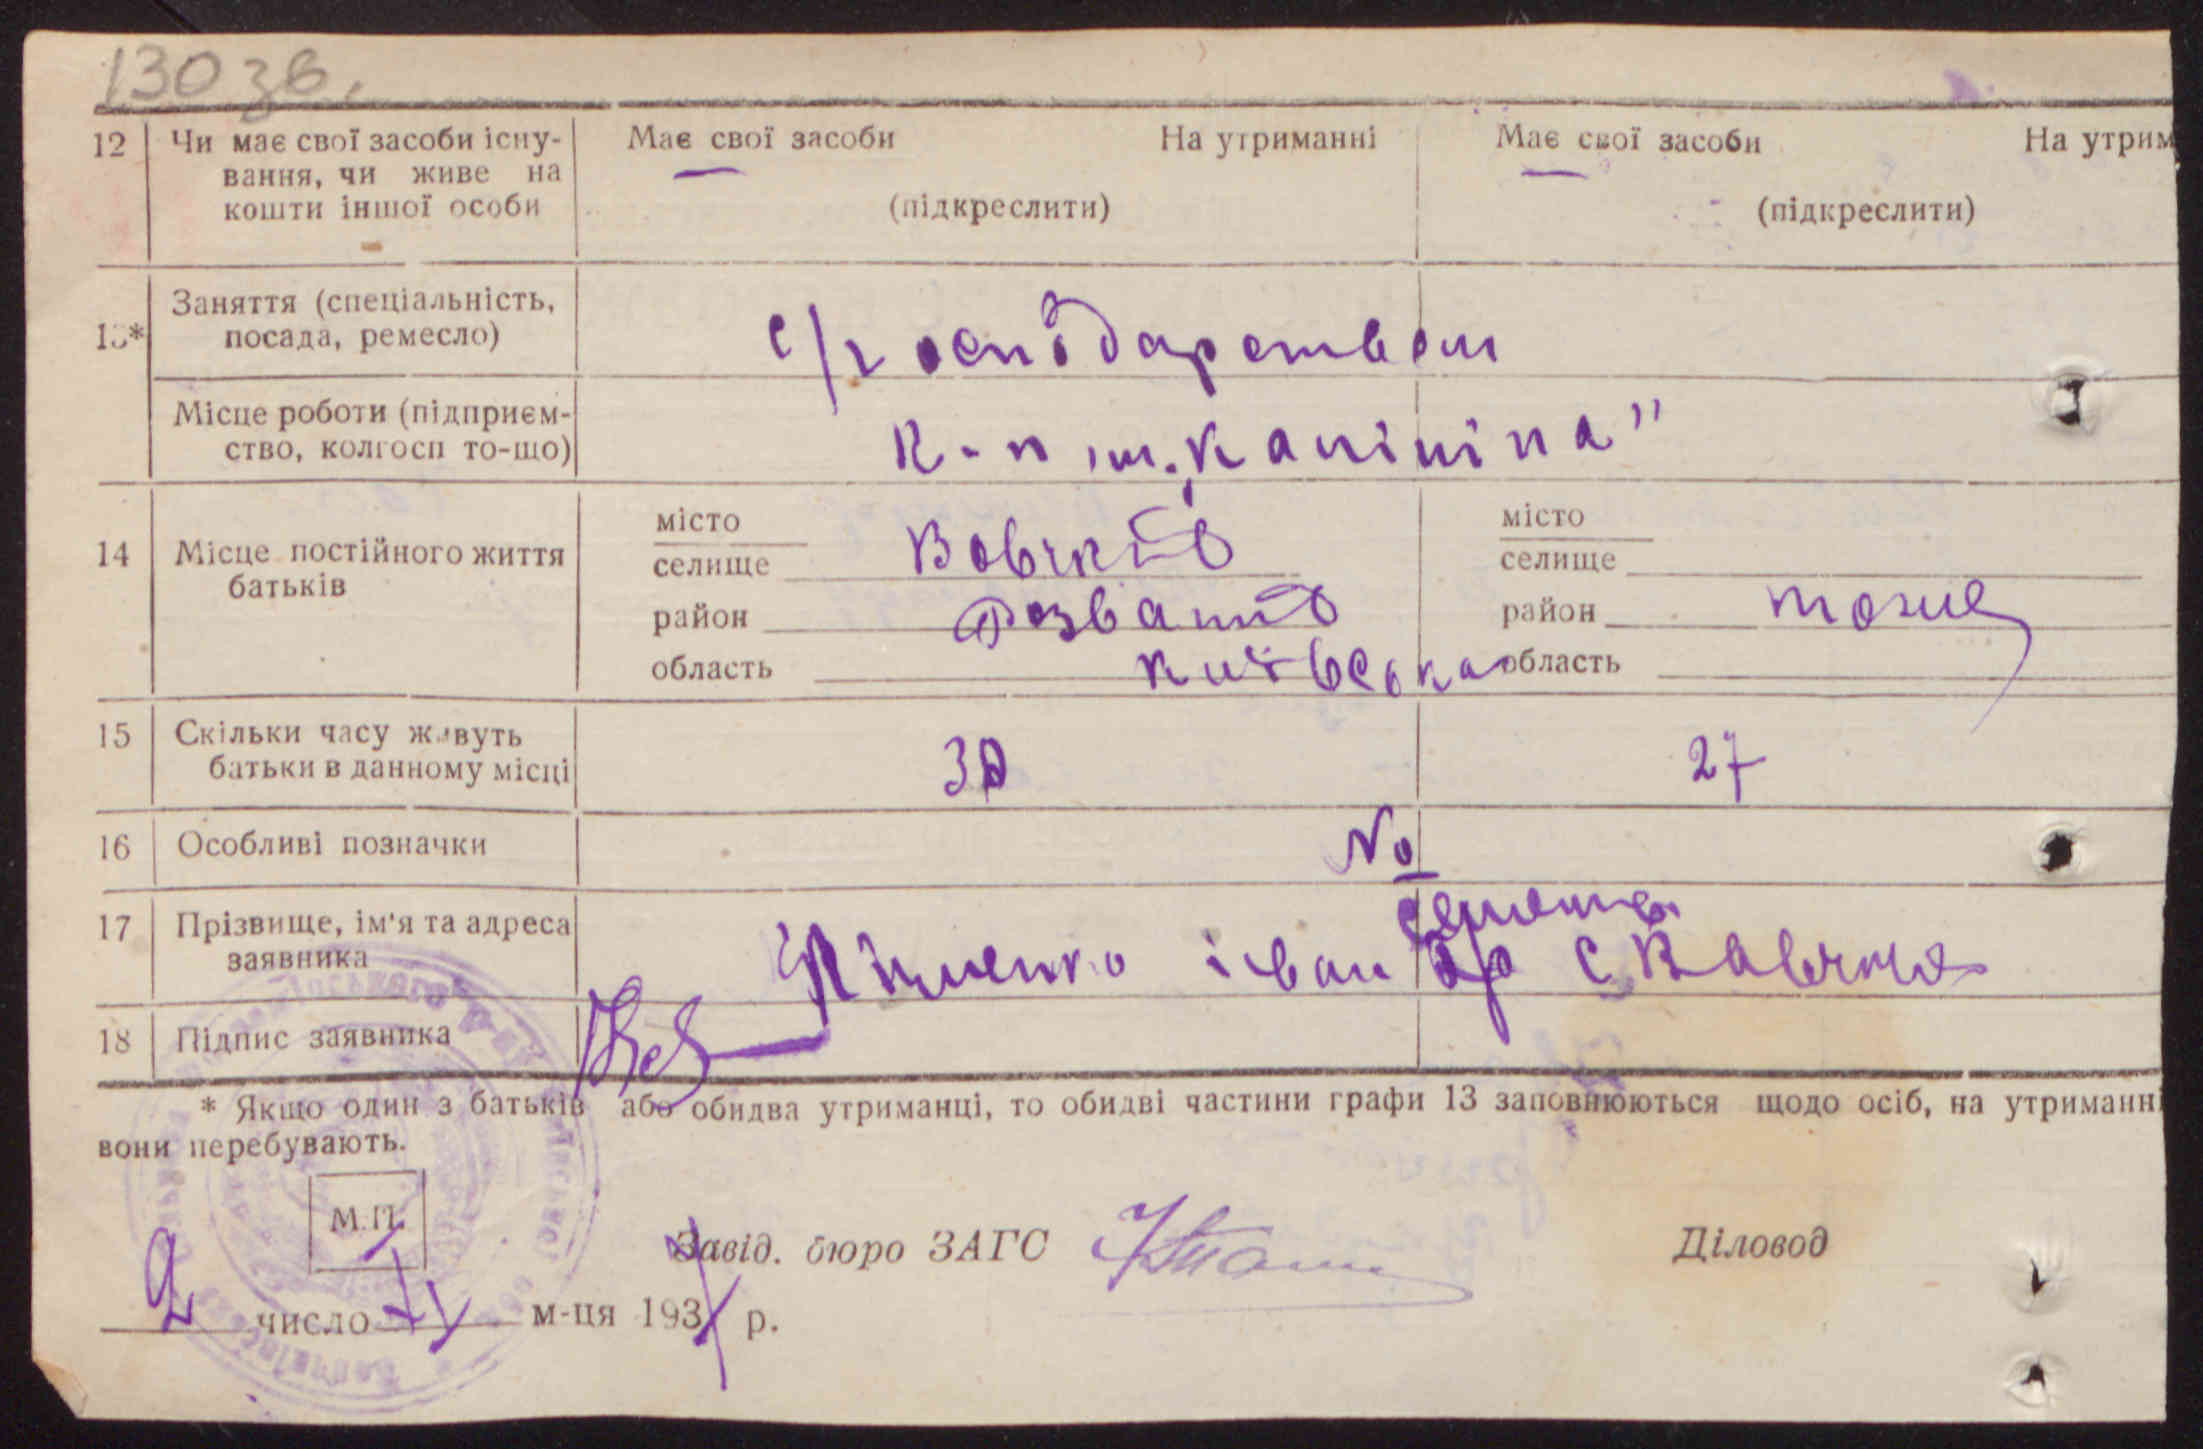 130 зв.
12 Чи має свої засоби існу- Має свої засоби На утриманні Має свої засоби На утрим
вання, чи живе на
кошти іншої особи (підкреслити) (підкреслити)
13* Заняття (спеціальність,
посада, ремесло) с/господарством
Місце роботи (підприєм-
ство, колгосп то-що) к-п ім. Калініна"
14 Місце постійного життя батьків
місто місто
селище Вовчків селище
район Розважів район тоже
область Київська область
15 Скільки часу живуть
батьки в данному місці 30 27
16 Особливі позначки №
17 Прізвище, ім'я та адреса
заявника Іван с
18 Підпис заявника
* Якщо один з батьків або обидва утриманці, то обидві частини графи 13 заповнюються щодо осіб, на утриманні
вони перебувають.
М.П.
Завід. бюро ЗАГС Діловод
2 число IV м-ця 193 р.